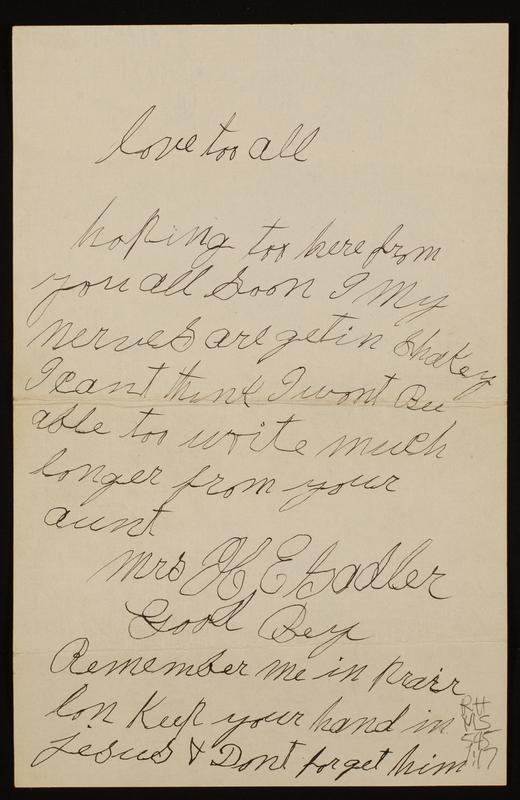 love too all
hoping too here from
you all Soon I My
nerves are getin Shakey
I cant think I wont Be
able too write much
longer from your
aunt
Mrs H E Sadler
Good Bey
Remember me in prairr
lon Keep your hand in
Jesus & Dont forget him
RH
MS
545
1:17